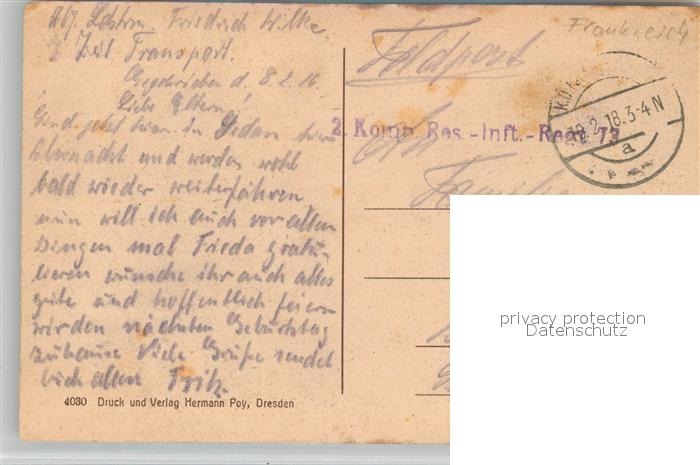 Abs. Friedrich Wilke
Zeit. Transport.
Geschrieben d. 8.2.16.
Liebe Eltern!
Sind jetzt hier in Sedan hier
übernacht und werden wohl
bald wieder weiterfahren
nun will ich auch vor allen
Dingen mal Frieda gratu-
lieren wünsche ihr auch alles
gute und hoffentlich feiern
wir den nächsten Geburtstag
zuhause Viele Grüße sendet
Euch allen Fritz.
4030 Druck und Verlag Hermann Poy, Dresden
Frankreich
Feldpost
2. Komp. Res.-Inft.-Regt. 73
2.18.3-4N
a
An
Familie
privacy protection
Datenschutz